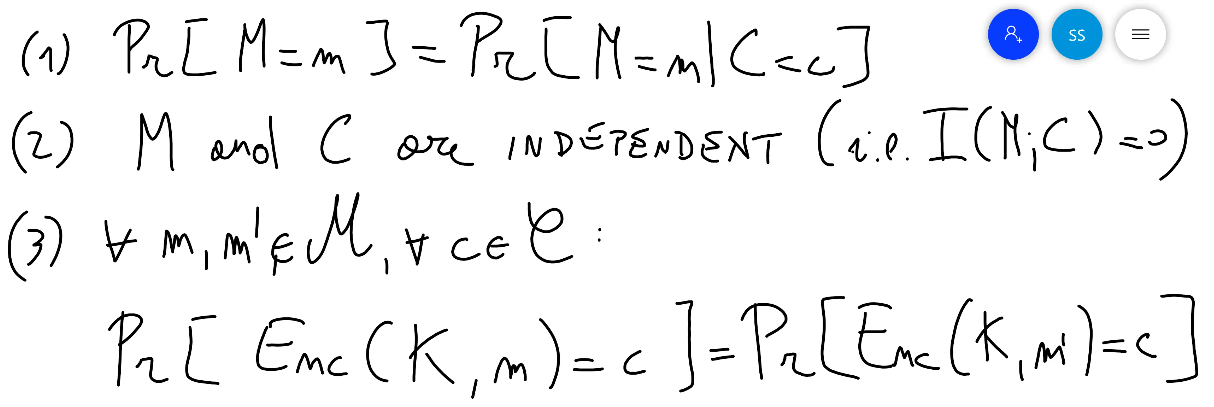 (1) Pr[M=m] = Pr[M=m|C=c]
SS
(2) M and C are INDEPENDENT (i.e. I(M;C)=0)
(3) ∀ m, m' ∈ M, ∀ c ∈ C :
Pr[Enc(K, m) = c] = Pr[Enc(K, m') = c]